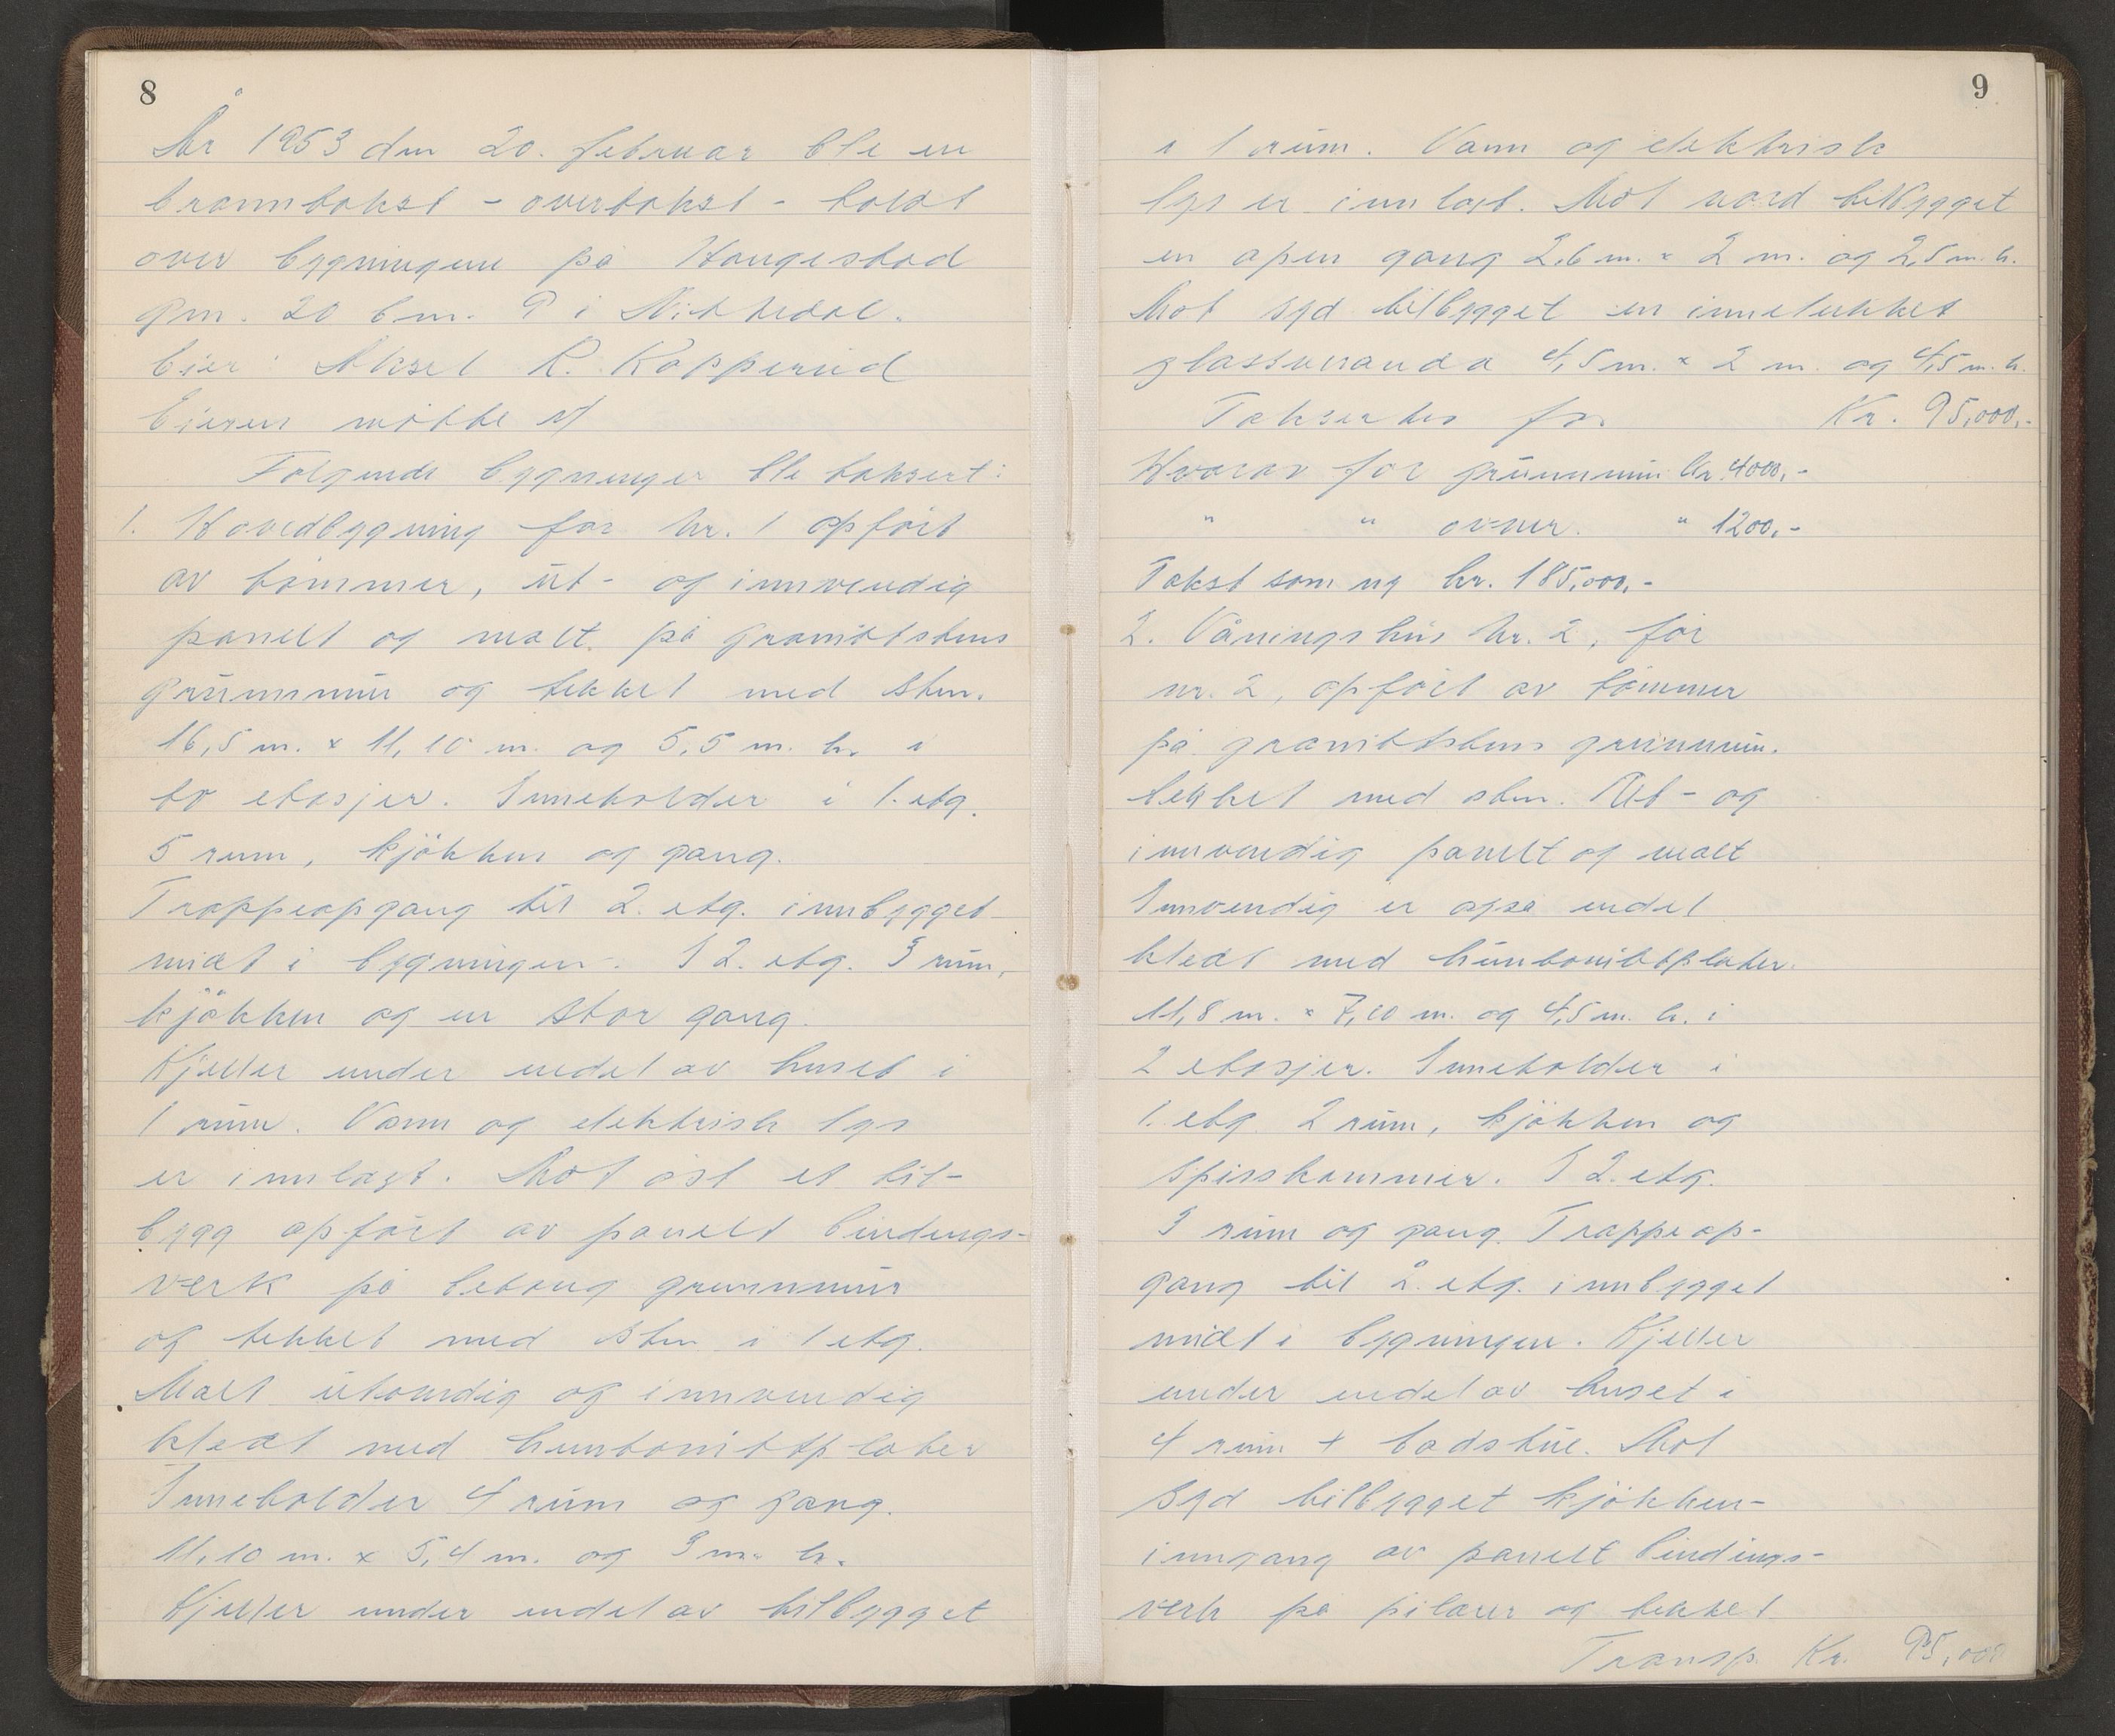 8
År 1953 den 20. februar ble en
branntakst - overtakst - holdt
over bygningene på Haugestad
gnr. 20 bnr. 9 i Nittedal.
Eier: Aksel R. Kopperud
Eieren møtte ej
Følgende bygninger ble taksert:
1. Hovedbygning for nr. 1 opført
av tømmer, ut- og innvendig
panelt og malt på granittstens
grunnmur og tekket med sten.
16,5 m. x 11,10 m. og 5,5 m. h. i
to etasjer. Inneholder i 1. etg.
5 rum, kjøkken og gang.
Trappeopgang til 2. etg. innbygget
midt i bygningen. I 2. etg. 3 rum,
kjøkken og en stor gang.
Kjeller under endel av huset i
1 rum. Vann og elektrisk lys
er innlagt. Mot øst et til-
bygg opført av panelt bindings-
verk på betong grunnmur
og tekket med sten i 1 etg.
Malt utvendig og innvendig
kledt med huntonittplater
Inneholder 4 rum og gang.
11,10 m. x 5,4 m. og 3 m. h.
Kjeller under endel av tilbygget
9
i 1 rum. Vann og elektrisk
lys er innlagt. Mot nord tilbygget
en åpen gang 2,6 m. x 2 m. og 2,5 m. h.
Mot syd tilbygget en innelukket
glassveranda 4,5 m. x 2 m. og 4,5 m. h.
Takseres for Kr. 95,000,-
Hvorav for grunnmur kr. 4000,-
" " ovner. " 1200,-
Takst som ny kr. 185,000,-
2. Våningshus nr. 2, før
nr. 2, opført av tømmer
på granittstens grunnmur.
tekket med sten. Ut- og
innvendig panelt og malt
Innvendig er også endel
kledt med huntonittplater.
11,8 m. x 7,10 m. og 4,5 m. h. i
2 etasjer. Inneholder i
1. etg. 2 rum, kjøkken og
spisskammer. I 2. etg.
3 rum og gang. Trappeop-
gang til 2. etg. innbygget
midt i bygningen. Kjeller
under endel av huset i
4 rum + badstue. Mot
syd tilbygget kjøkken-
inngang av panelt bindings-
verk på pilarer og tekket
Transp. Kr. 95,000